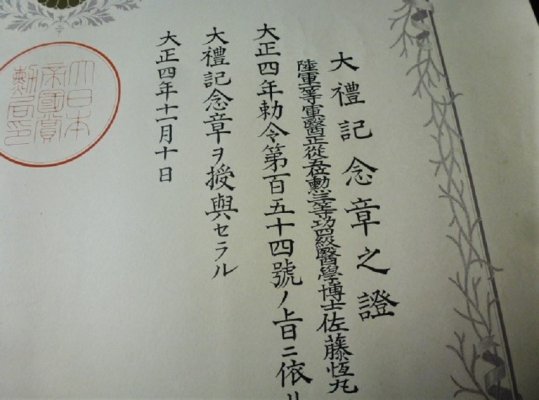 大禮記念章之證
陸軍一等軍醫正從五位勳三等功四級醫學博士佐藤恆丸
大正四年勅令第百五十四號ノ旨ニ依リ
大禮記念章ヲ授與セラル
大正四年十一月十日
大日本
帝國賞
勳局印